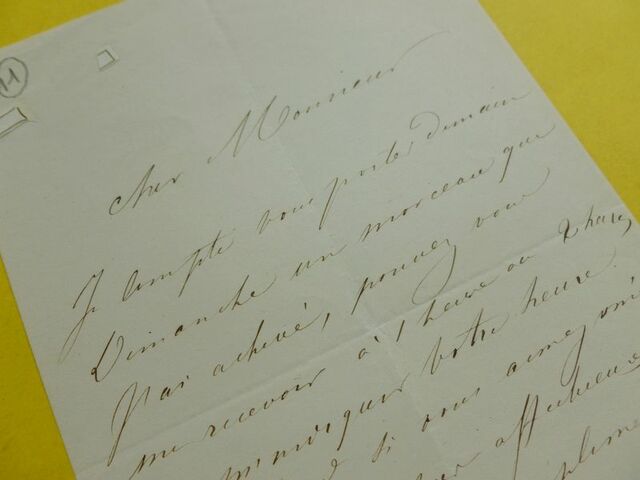 11
Cher Monsieur
Je compte vous porter demain
Dimanche un morceau que
j'ai achevé, pouvez vous
me recevoir à 1 heure ou 2 heures
votre heure.
si vous aimez